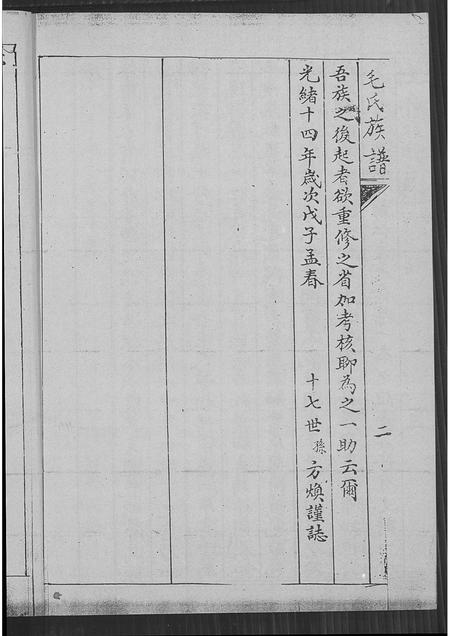 毛氏族譜
二
吾族之後起者欲重修之省加考核聊為之一助云爾
光緒十四年歲次戊子孟春 十七世孫方煥謹誌